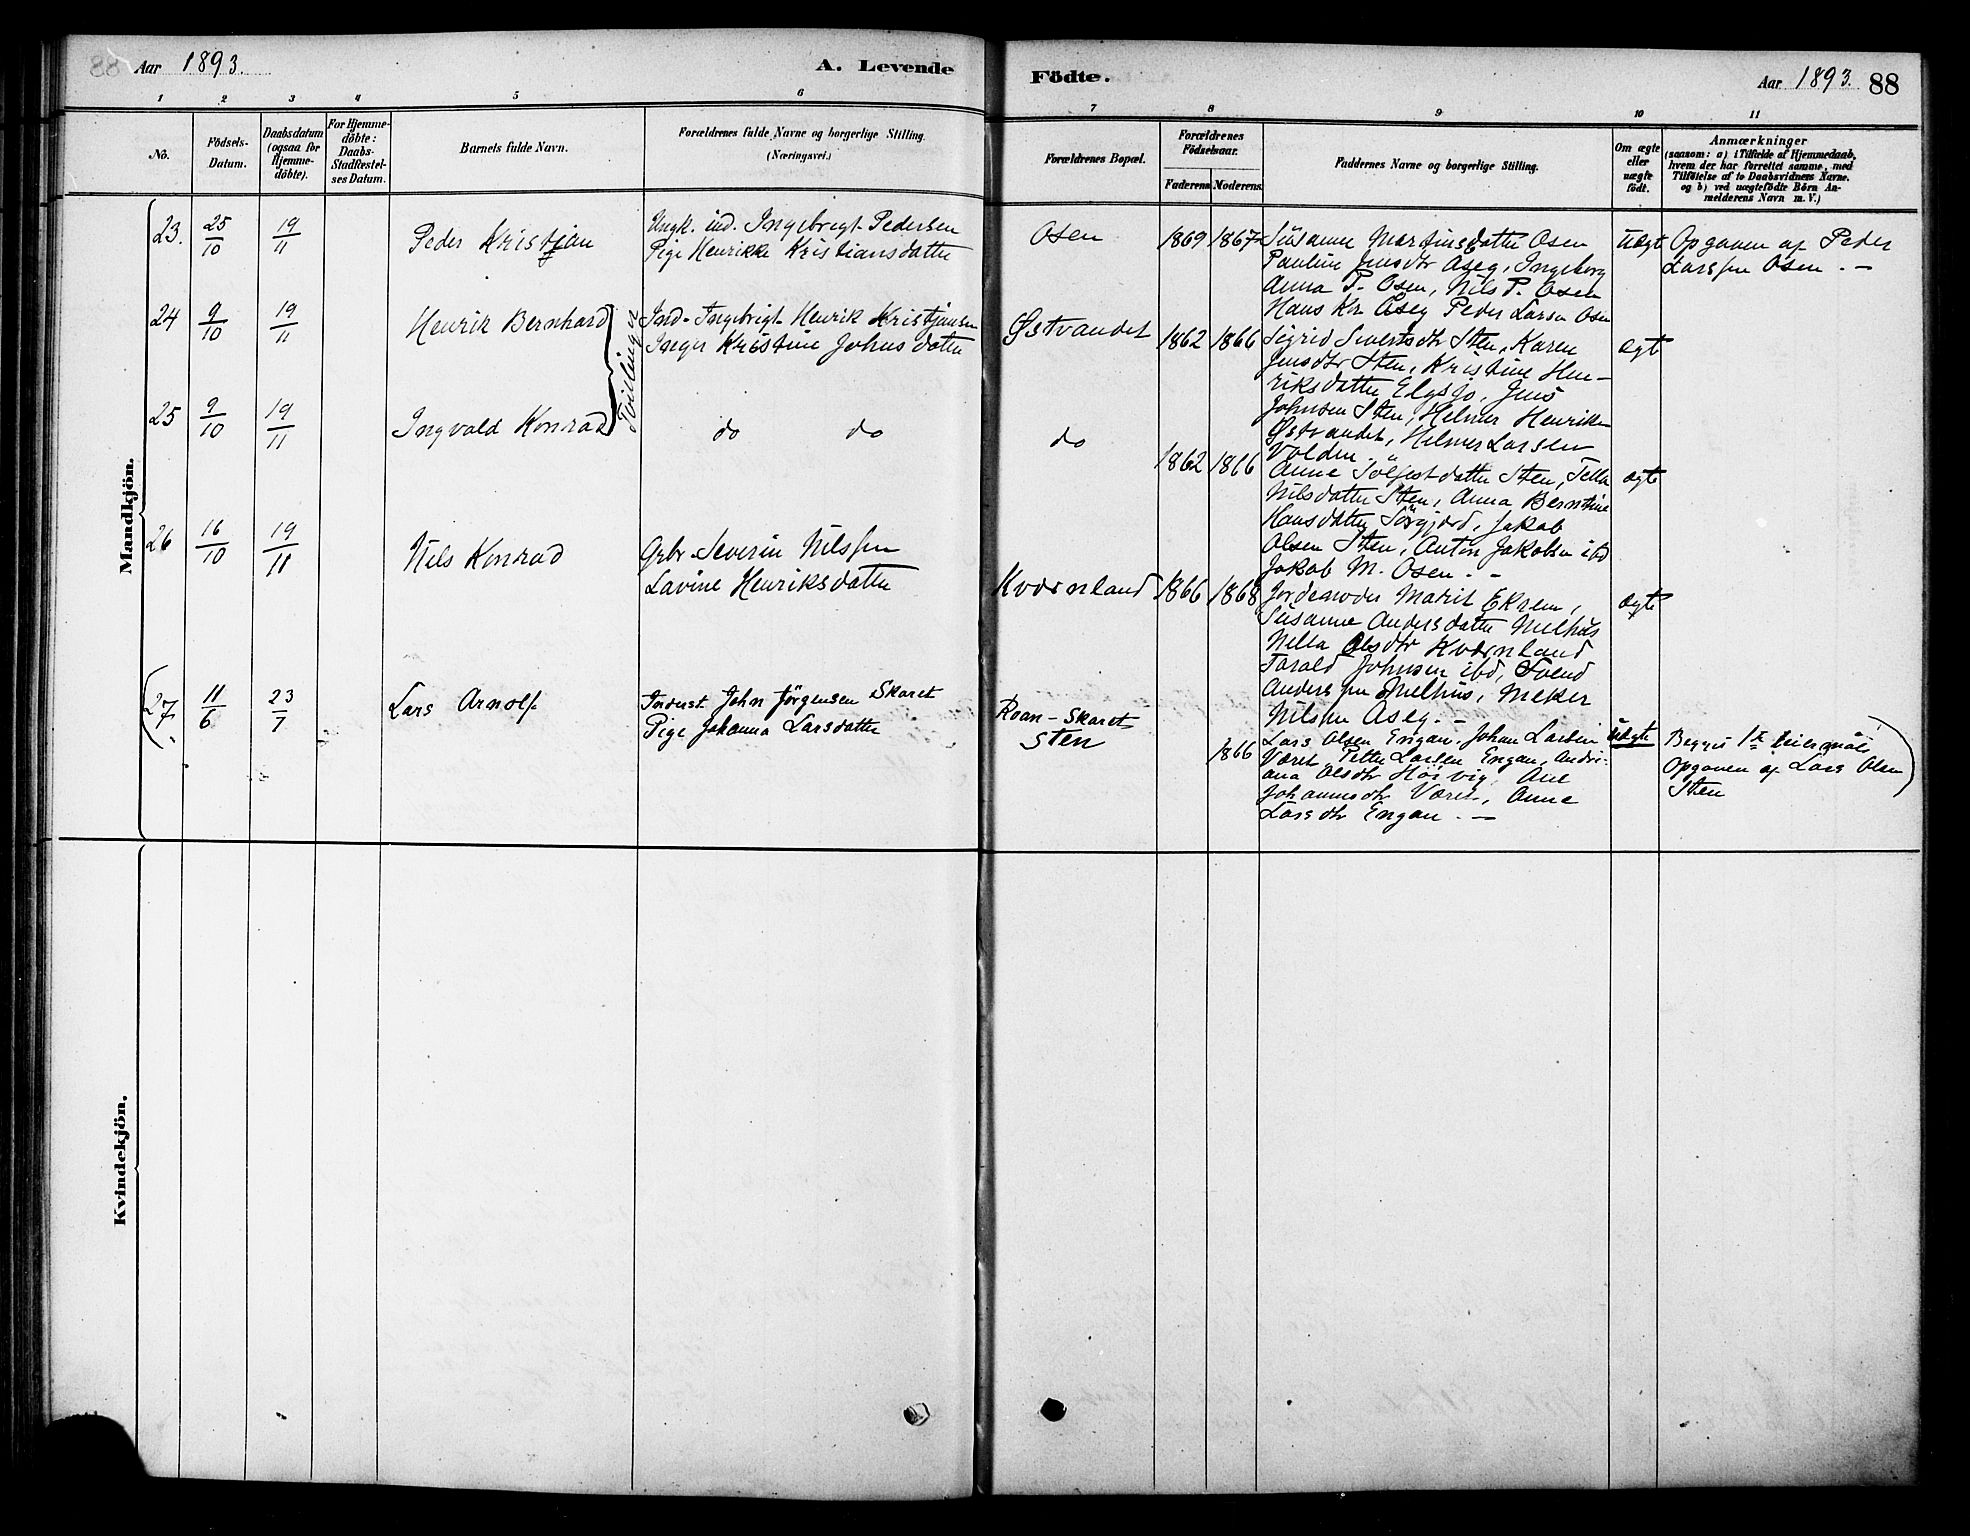 88 Aar 1893. A. Levende Födte. Aar 1893. 88
1 2 3 4 5 6 7 8 9 10 11
No.
Födsels-
Datum.
Daabsdatum
(ogsaa for
Hjemme-
döbte).
For Hjemme-
döbte:
Daabs-
Stadfæstel-
ses Datum.
Barnets fulde Navn.
Forældrenes fulde Navne og borgerlige Stilling.
(Næringsvei.)
Forældrenes Bopæl.
Forældrenes
Födselsaar.
Faderens Moderens
Faddernes Navne og borgerlige Stilling.
Om ægte
eller
uægte
födt.
Anmærkninger
(saasom: a) i Tilfælde af Hjemmedaab,
hvem der har forrettet samme, med
Tilföielse af to Daabsvidners Navne.
og b) ved uægtefödte Börn An-
melderens Navn m. V.)
Mandkjön.
23. 25/10 19/11 Peder Kristian
Ungk. ind. Ingebregt Pedersen
Pige Henrikke Kristiansdatter
Osen 1869 1867
Susanne Martinsdatter Osen
Pauline Jensdtr Aseg, Ingeborg
Anna P. Osen, Nils P. Osen
Hans Kr. Aseg Peder Larsen Osen
Uægt
Opgaven af Peder
Larssen Osen. -
24 9/10 19/11 Henrik Bernhard
Tvillinger
Ind. Ingebrigt Henrik Kristjansen
Inger Kristine Johnsdatter
Østvandet 1862 1866
Sigrid Sivertsdtr Sten, Karen
Jensdtr Sten, Kristine Hen-
riksdatter Elgsjo, Jens
Johnsen Sten, Helmer Henriksen
Østvandet, Helmer Larsen
Volden. "
ægt
25 9/10 19/11 Ingvald Konrad
do do
do 1862 1866
Anne Solfestdatter Sten, Tella
Nilsdatter Sten, Anna Berntine
Hansdatter Sørgjerd, Jakob
Olsen Sten, Anton Jakobsen ibd
Jakob M. Osen. -
ægte
26 16/10 19/11 Nils Konrad
Grbr. Severin Nilssen
Lavine Henriksdatter
Kværnland 1866 1868
Jordemoder Marit Ekrem,
Susanne Andersdatter Melhus
Nella Olsdtr Kværnland
Tarald Johnsen ibd, Svend
Anderssen Melhus, Meker
Nilsen Aseg. -
ægte
(27. 11/6 23/7 Lars Arnolf.
Inderst John Jørgensen Skaret
Pige Johanna Larsdatter
Roan - Skaret
Sten
1866
Lars Olsen Engan. Johan Larsen
Været, Petter Larsen Engan, Andri-
ana Olsdtr Høivig, Ane
Johannsdtr Været, Anne
Larsdtr Engan. -
Uægte
Begges 1te leiermål
Opgaven af Lars Olsen
Sten )
Kvindekjön.